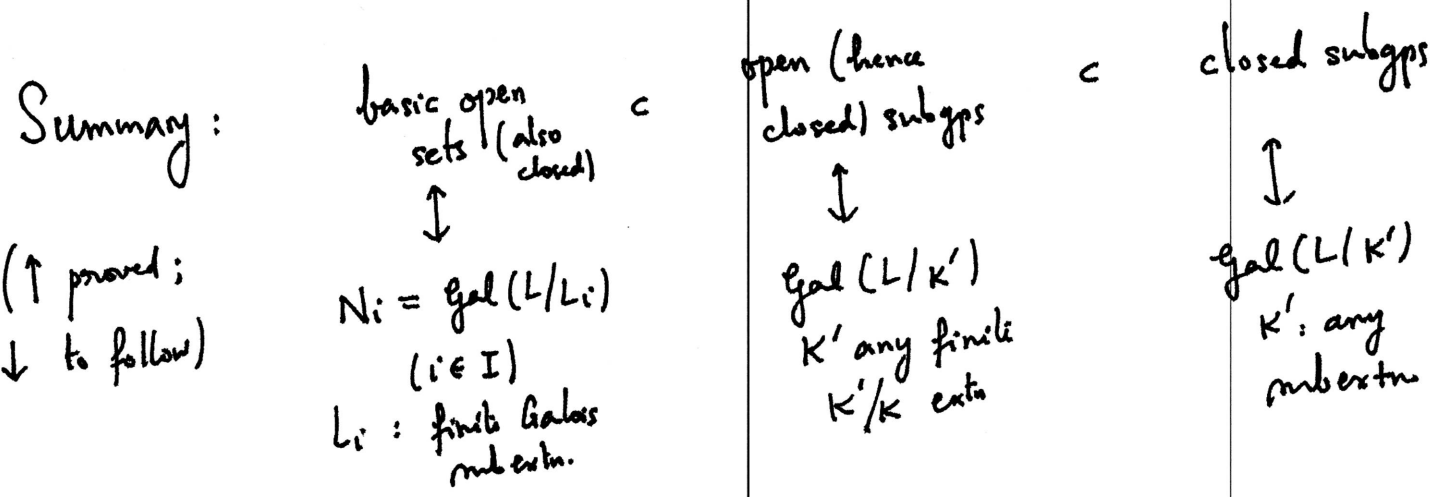 Summary :
(↑ proved ;
↓ to follow)
basic open
sets (also
closed)
↕
Nᵢ = Gal(L/Lᵢ)
(i ∈ I)
Lᵢ : finite Galois
subextn.
⊂
open (hence
closed) subgps
↕
Gal (L/K')
K' any finite
K'/K extn
⊂
closed subgps
↕
Gal (L/K')
K' : any
subextn.